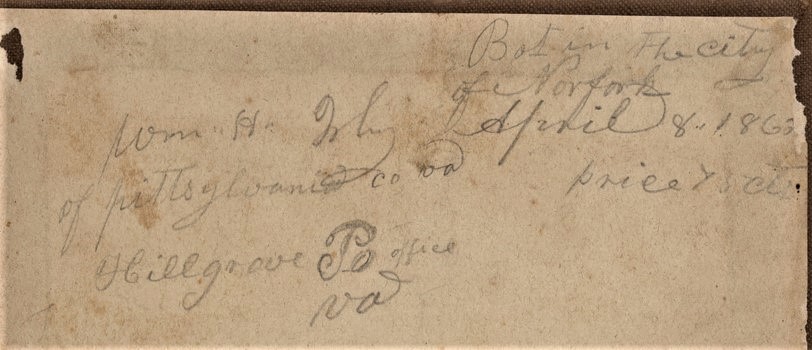 Bot in the city
of Norfork
April 8. 1862
Wm. H. Irby
of pittsylvania co va
price 75 cts
Hillgrove Po office
va